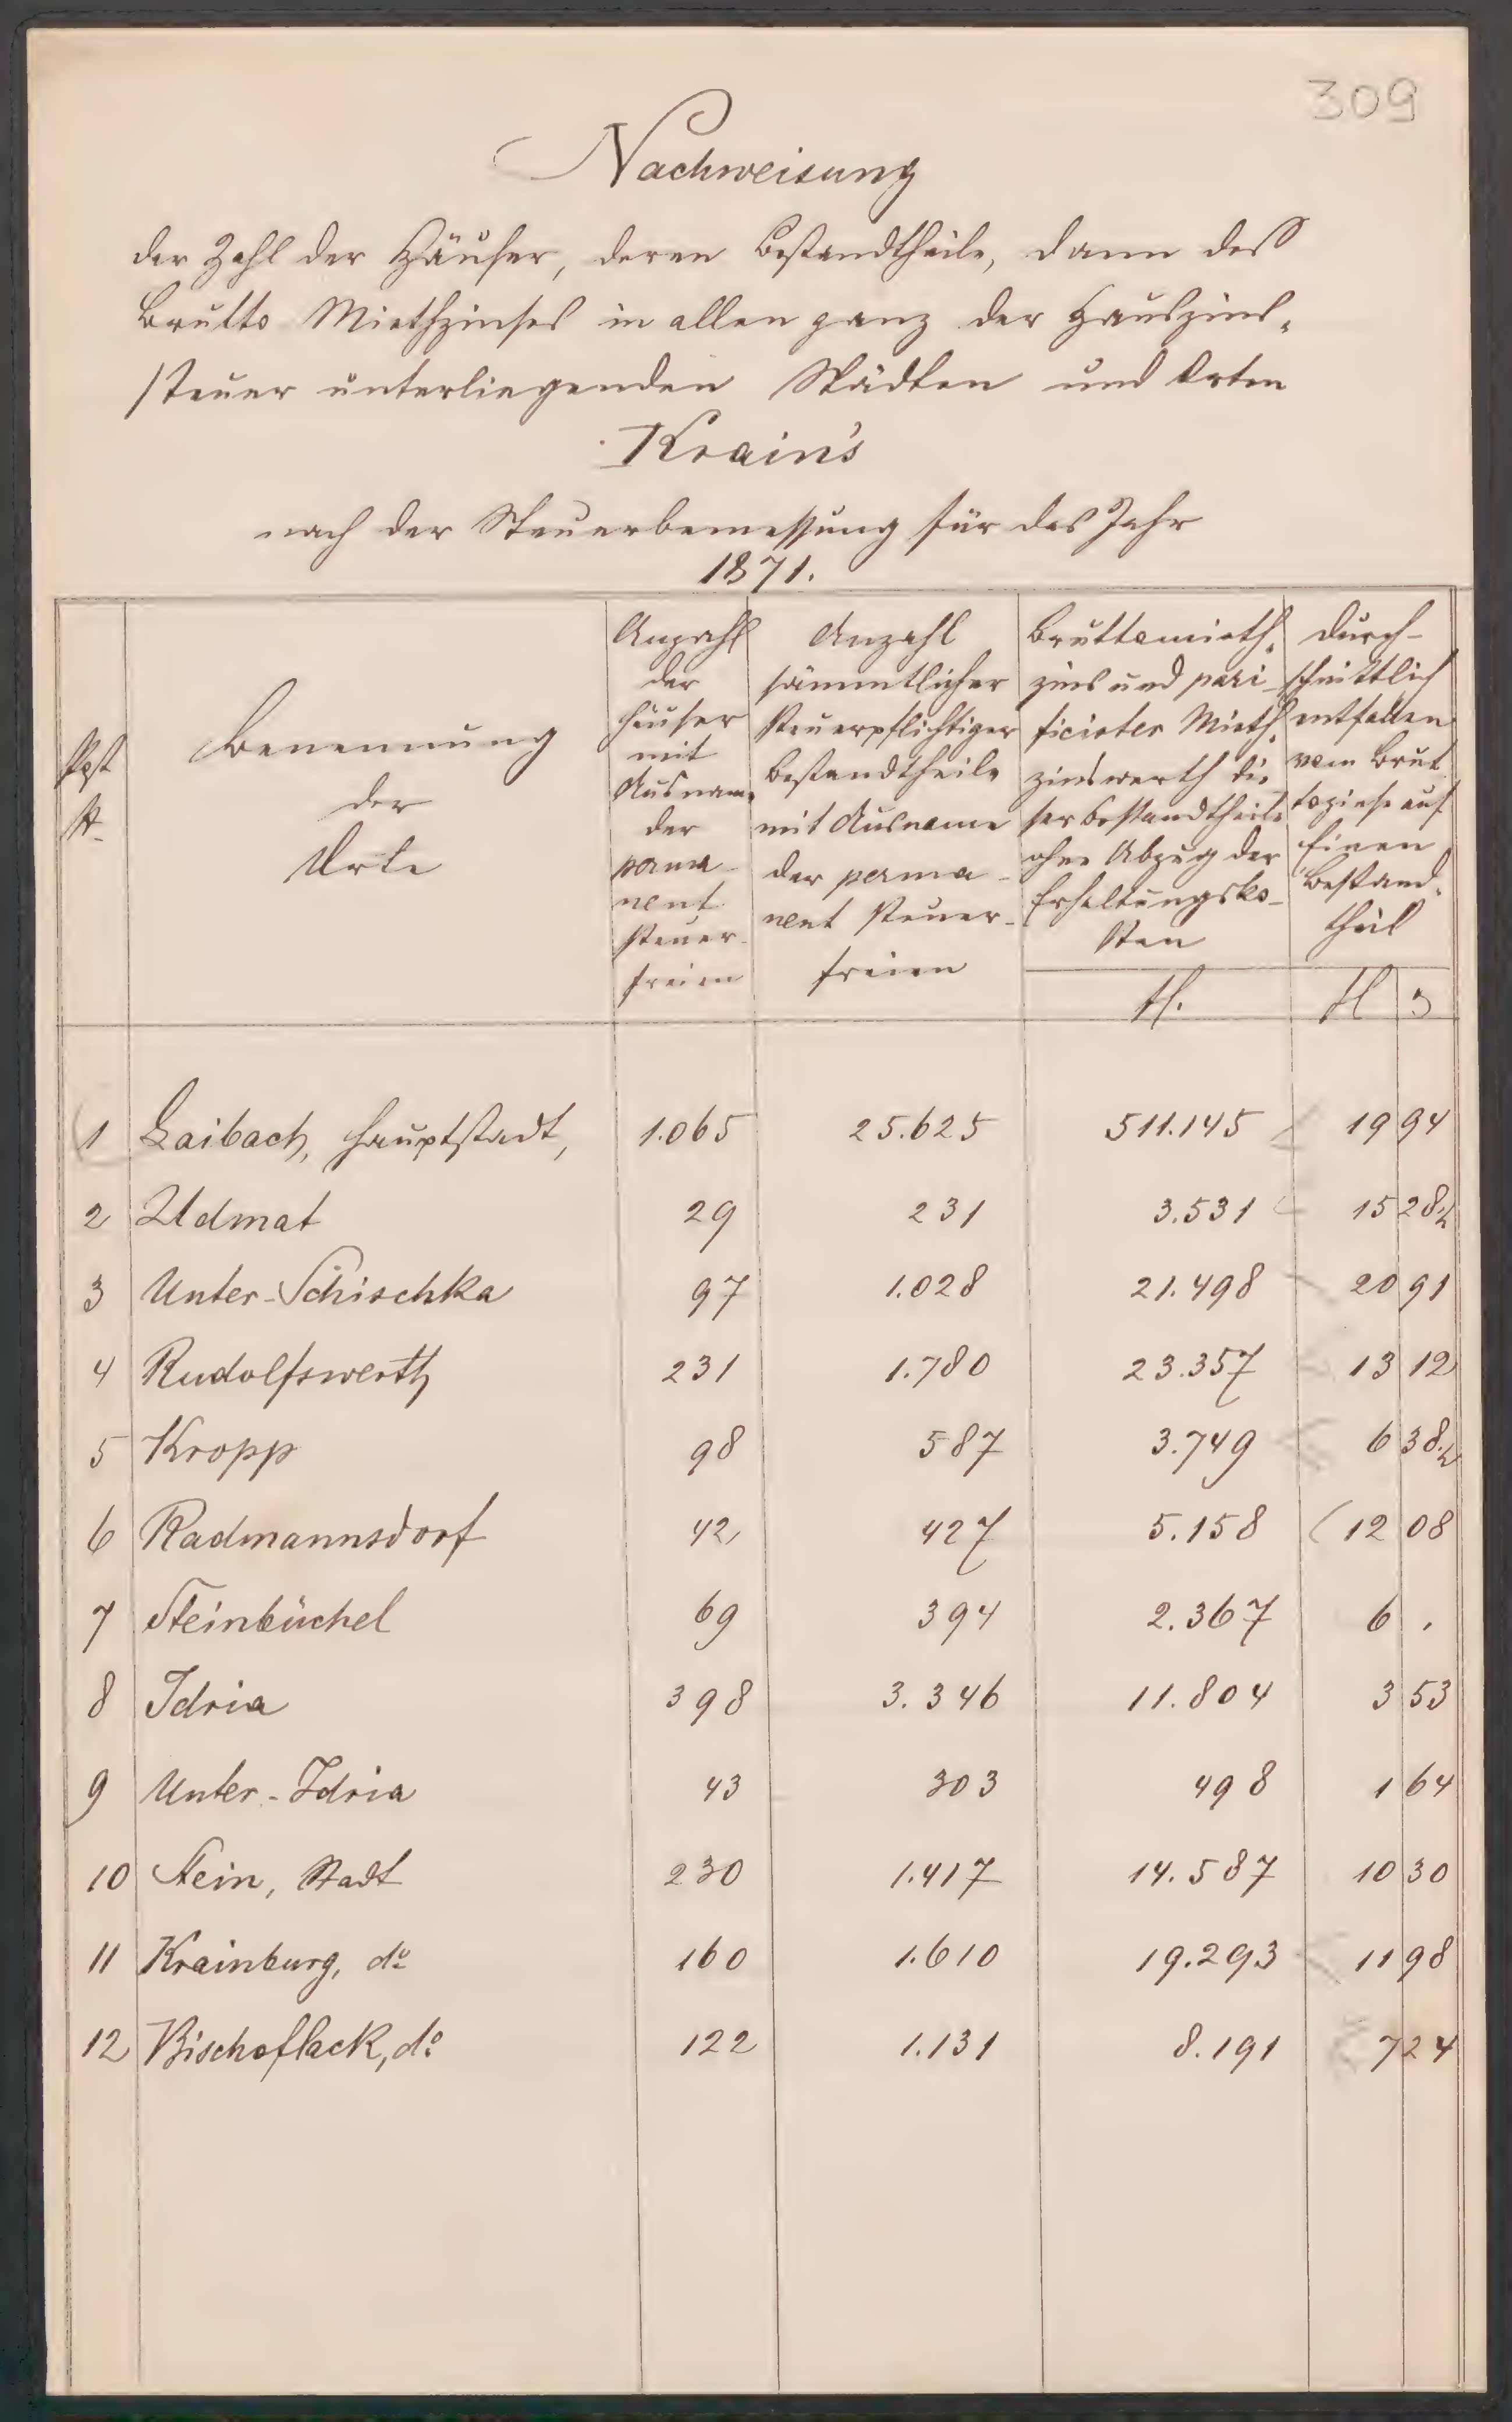 309
Nachweisung
der Zahl der Häuser, deren Bestandtheile, dann des
Brutto Miethzinses in allen ganz der Hauszins-
steuer unterliegenden Städten und Orten
Krain's
nach der Steuerbemessung für das Jahr
1871.
Post N.
Benennung
der
Orte
Anzahl
der
Häuser
mit
Ausnam.
der
perma-
nent
steuer-
freien
Anzahl
sämmtlicher
steuerpflichtiger
Bestandtheile
mit Ausname
der perma-
nent steuer-
freien
Bruttomieth-
zins und pari-
ficirter Mieth-
zinswerth die-
ser Bestandtheile
ohne Abzug der
Erhaltungsko-
sten
fl.
Durch-
schnittlich
entfallen
vom Brut-
tozinse auf
Einen
Bestand-
theil
fl
1 Laibach, Hauptstadt, 1.065 25.625 511.145 19 94
2 Udmat 29 231 3.531 15 28½
3 Unter-Schischka 97 1.028 21.498 20 91
4 Rudolfswerth 231 1.780 23.357 13 12
5 Kropp 98 587 3.749 6 38½
6 Radmannsdorf 42 427 5.158 12 08
7 Steinbüchel 69 394 2.367 6 .
8 Idria 398 3.346 11.804 3 53
9 Unter-Idria 43 303 498 1 64
10 Stein, Stadt 230 1.417 14.587 10 30
11 Krainburg, do 160 1.610 19.293 11 98
12 Bischoflack, do 122 1.131 8.191 7 24